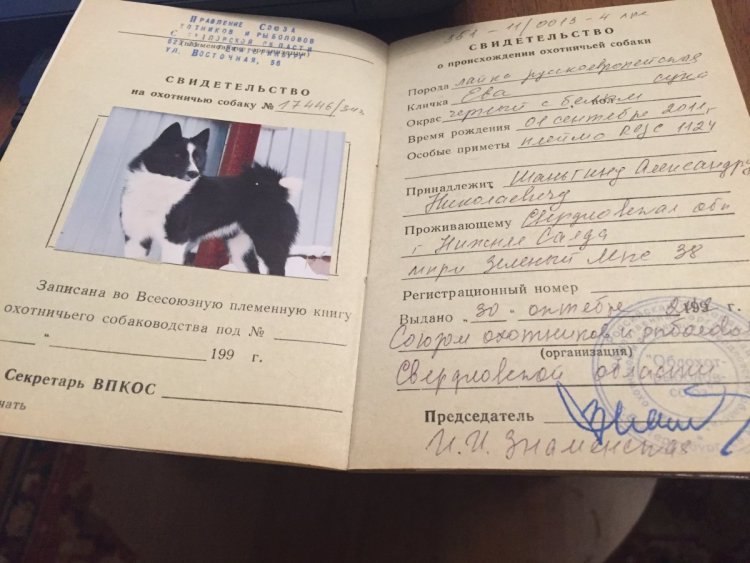 Правление Союза
охотников и рыболовов
ул. Восточная, 56
СВИДЕТЕЛЬСТВО
на охотничью собаку № 17446/
Записана во Всесоюзную племенную книгу
охотничьего собаководства под №
" " 199 г.
Секретарь ВПКОС
361-11/0013-4
СВИДЕТЕЛЬСТВО
о происхождении охотничьей собаки
Порода лайка русскоевропейская
Кличка Ева пол сука
Окрас черный с белым
Время рождения 01 сентября 2011г
Особые приметы клеймо 1124
Принадлежит Шаньгину Александру
Николаевичу
Проживающему Свердловская обл
г Нижняя Салда
мкрн Зеленый Мыс 38
Регистрационный номер
Выдано „30" октября г.
Союзом охотников и рыболовов
(организация)
Свердловской области
Председатель
И.И. Знаменская